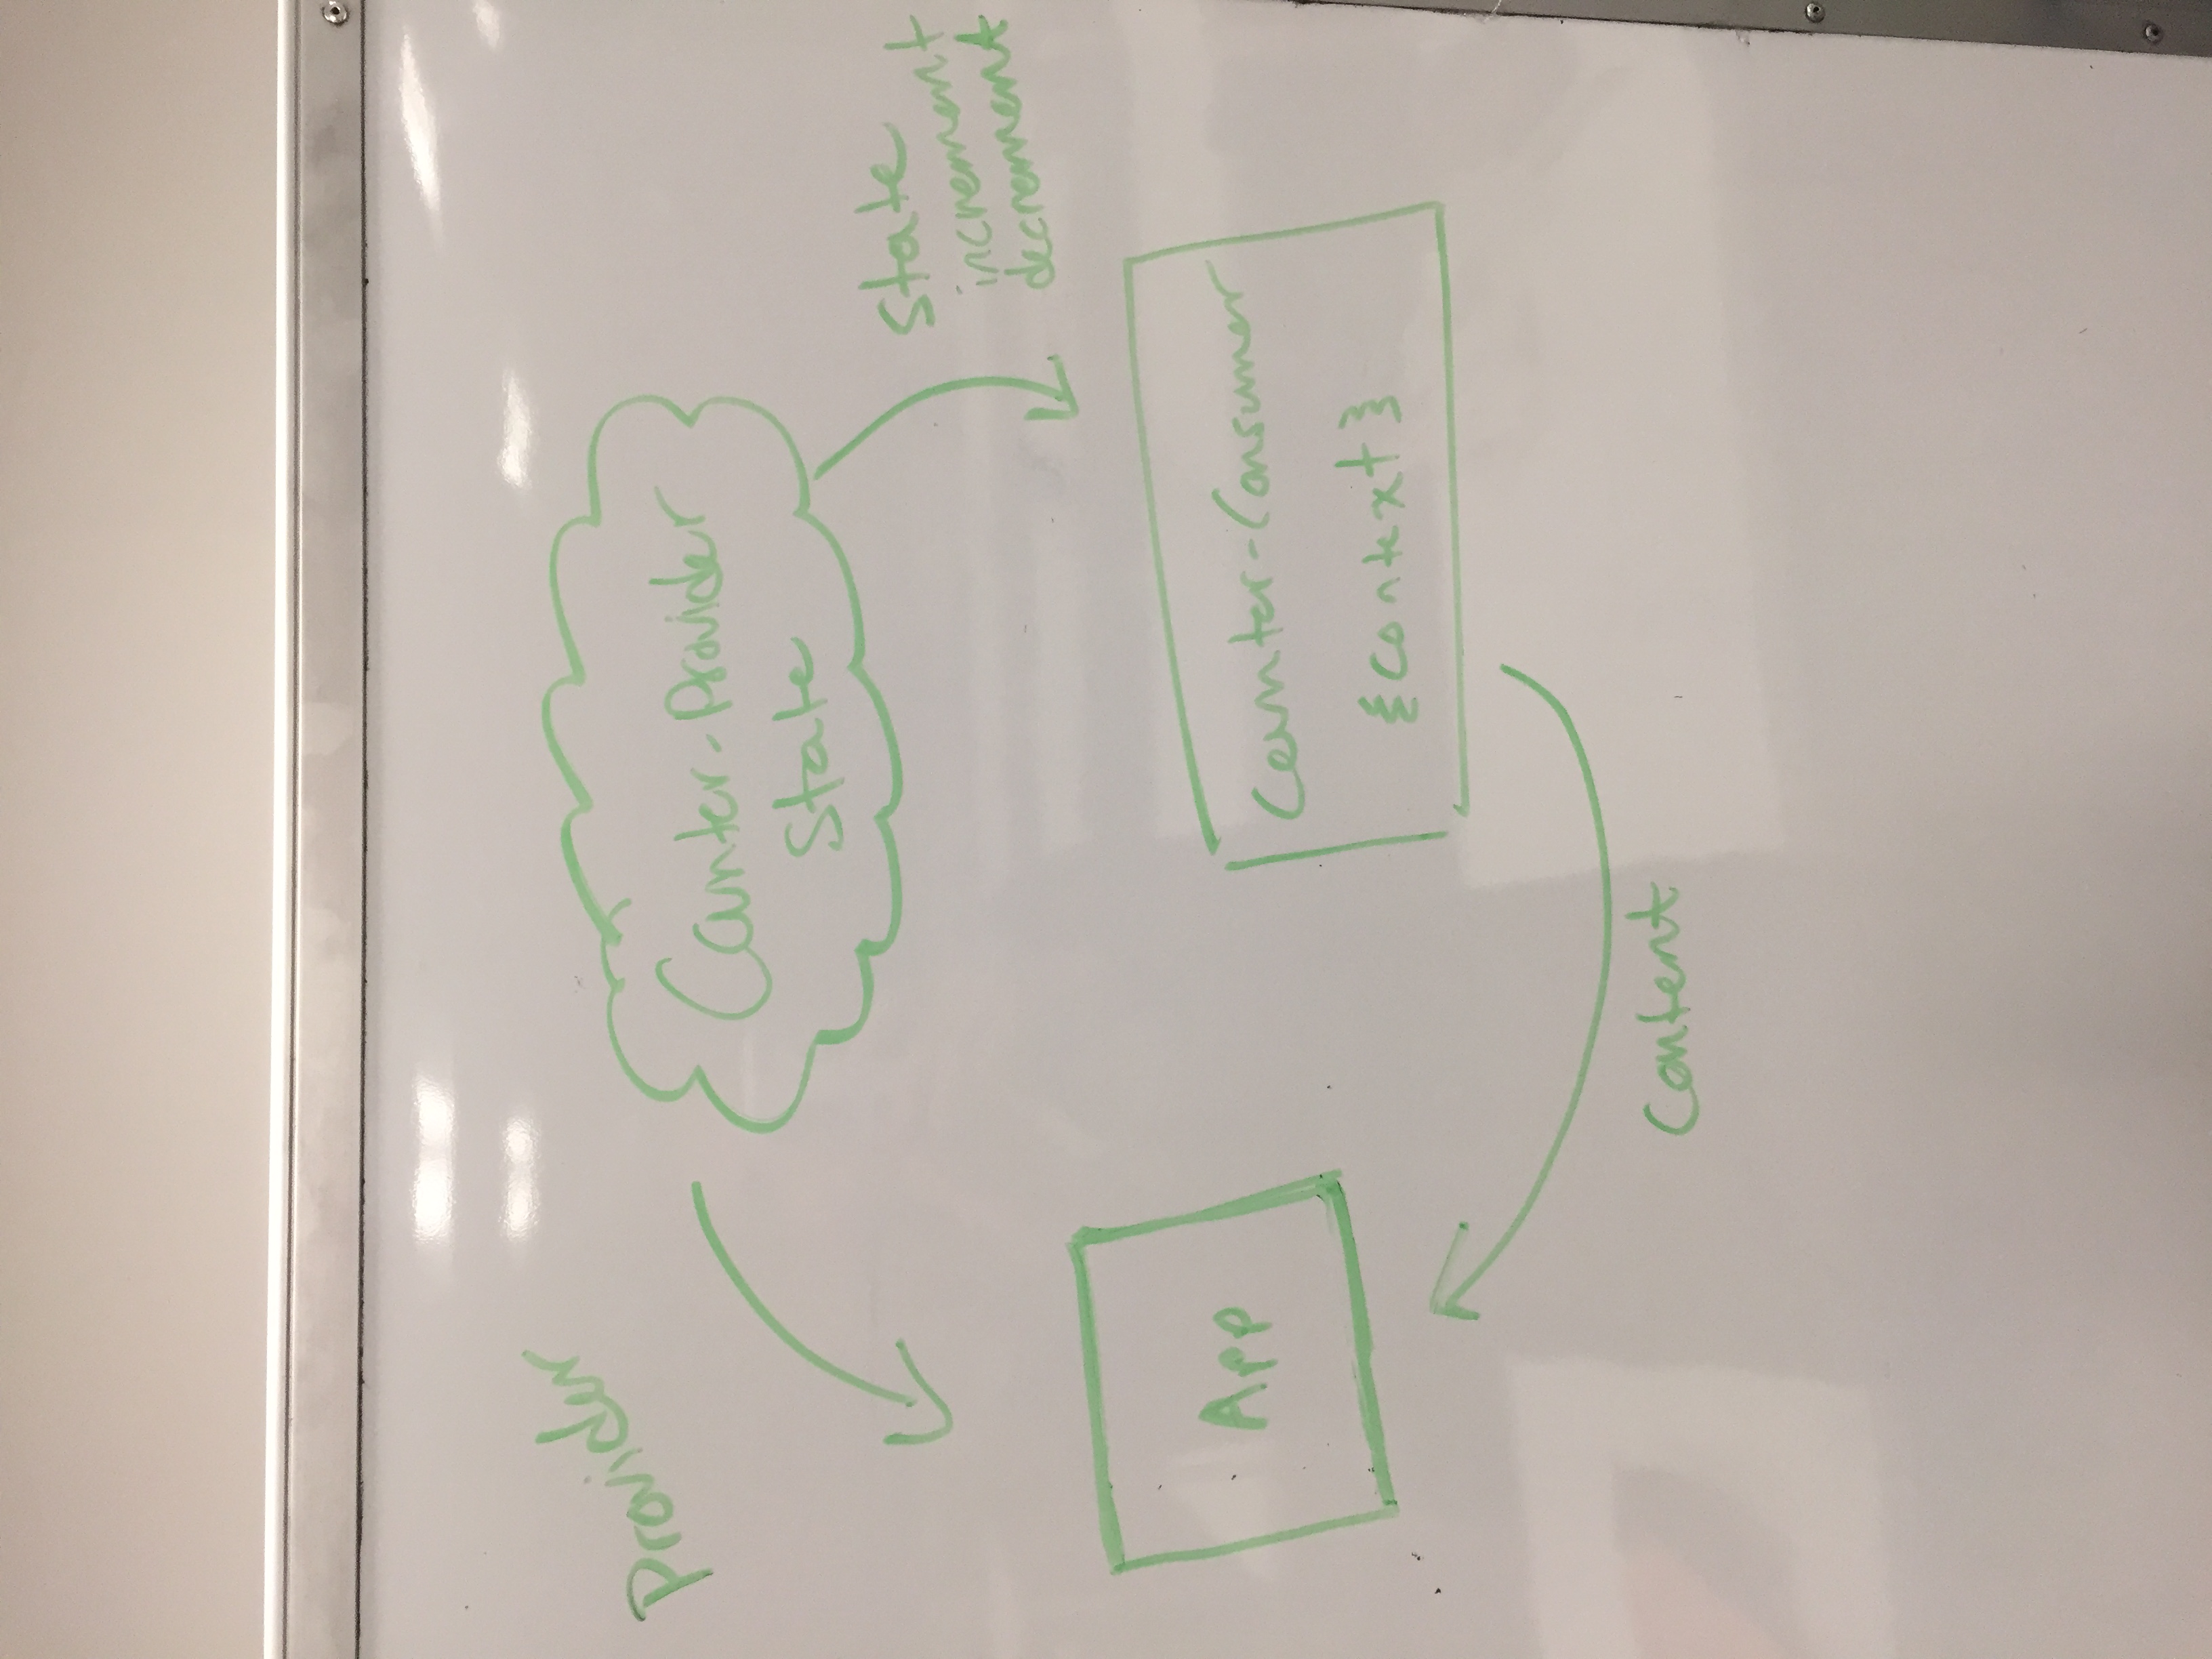 Provider
Counter-Provider
State
State
increment
decrement
App
Counter-Consumer
{context}
Content